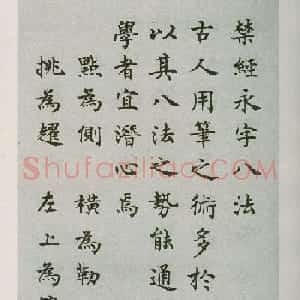 禁經永字八法
古人用筆之術多於
以其八法之勢能通
學者宜潛心焉
點為側 橫為勒
挑為趯 左上為
Shufaziliao.COM